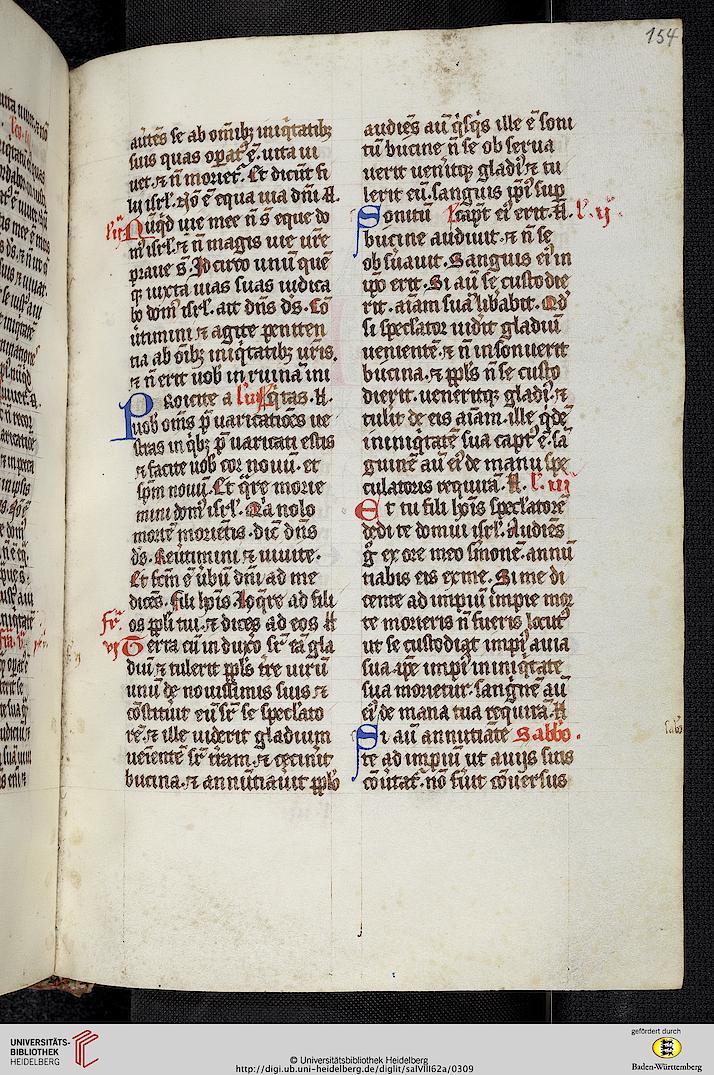 154
autēs se ab om̄ibꝫ iniq̇tatibꝫ
suis quas oꝑatꝰ ē. uita ui
uet. ⁊ n̄ morietᷣ. Et dicūt fi
lij isrl̄. nō ē equa uia dn̄i. R.
Nūq̇d uie mee n̄ s̄ eque do
mꝰ isrl̄. ⁊ n̄ magis uie ur̄e
praue s̄. Idcirco unū quē
qꝫ iuxta uias suas iudica
bo domꝰ isrl̄. ait dn̄s ds̄. Cō
ūtimini ⁊ agite peniten
tia ab ōibꝫ iniq̇tatibꝫ ur̄is.
⁊ n̄ erit uob̄ in ruinā ini
Proicite a q̇tas. R.
uob̄ om̄s p̄uaricatiōes ue
stras in q̇bꝫ p̄uaricati estis
⁊ facite uob̄ cor nouū. et
sp̄m nouū. Et q̄re morie
mini domꝰ isrl̄. Q̇a nolo
mortē moriētis. dic̄ dn̄s
ds̄. Reūtimini ⁊ uiuite.
Et fc̄m ē ūbū dn̄i ad me
dicēs. Fili hoīs. loq̄re ad fili
os ppl̄i tui. ⁊ dices ad eos
fr̄. vj
Terra cū induxo sr̄ eā gla
diū ⁊ tulerit ppl̄s tr̄e uirū
unū de nouissimis suis ⁊
cōstituit eū sr̄ se speclato
rē. ⁊ ille uiderit gladium
ueīentē sr̄ tr̄am. ⁊ cecinit
bucina. ⁊ annūtiauit ppl̄o
audiēs au q̇sq̇s ille ē sonī
tū bucine n̄ se obserua
uerit ueniitqꝫ gladiꝰ ⁊ tu
lerit eū. sanguis ip̄iꝰ suꝑ
Sonitū capt̄ eiꝰ erit. R. l. ij.
bucine audiuit. ⁊ n̄ se
obsuauit. Sanguis eiꝰ in
ip̄o erit. Si au se custodie
rit. aīam suā libabit. Qd̄
si speclator uidit gladiū
uenientē. ⁊ n̄ insonuerit
bucina. ⁊ ppl̄s n̄ se custo
dierit. ueneritqꝫ gladiꝰ. ⁊
tulit de eis aīam. ille q̇dē
in iniq̇tate sua captꝰ ē. sā
guinē au eiꝰ de manu spe
culatoris requirā. R. l. iij
Et tu fili hoīs speclatorē
dedi te domui isrl̄. Audiēs
g̊ ex ore meo sm̄onē. annū
tiabis eis ex me. Si me di
cente ad impiū impie mor
te morieris n̄ fueris locutꝰ
ut se custodiat impiꝰ a uia
sua. ip̄e impiꝰ in iniq̇tate
sua morietur. sanguinē au
eiꝰ de manu tua requirā. R
Si au annūtiāte Sabbo.
te ad impiū ut a uijs suis
cōūtatᷣ. nō fuit cōuersus
UNIVERSITÄTS-
BIBLIOTHEK
HEIDELBERG
© Universitätsbibliothek Heidelberg
http://digi.ub.uni-heidelberg.de/diglit/salVIII62a/0309
gefördert durch
Baden-Württemberg